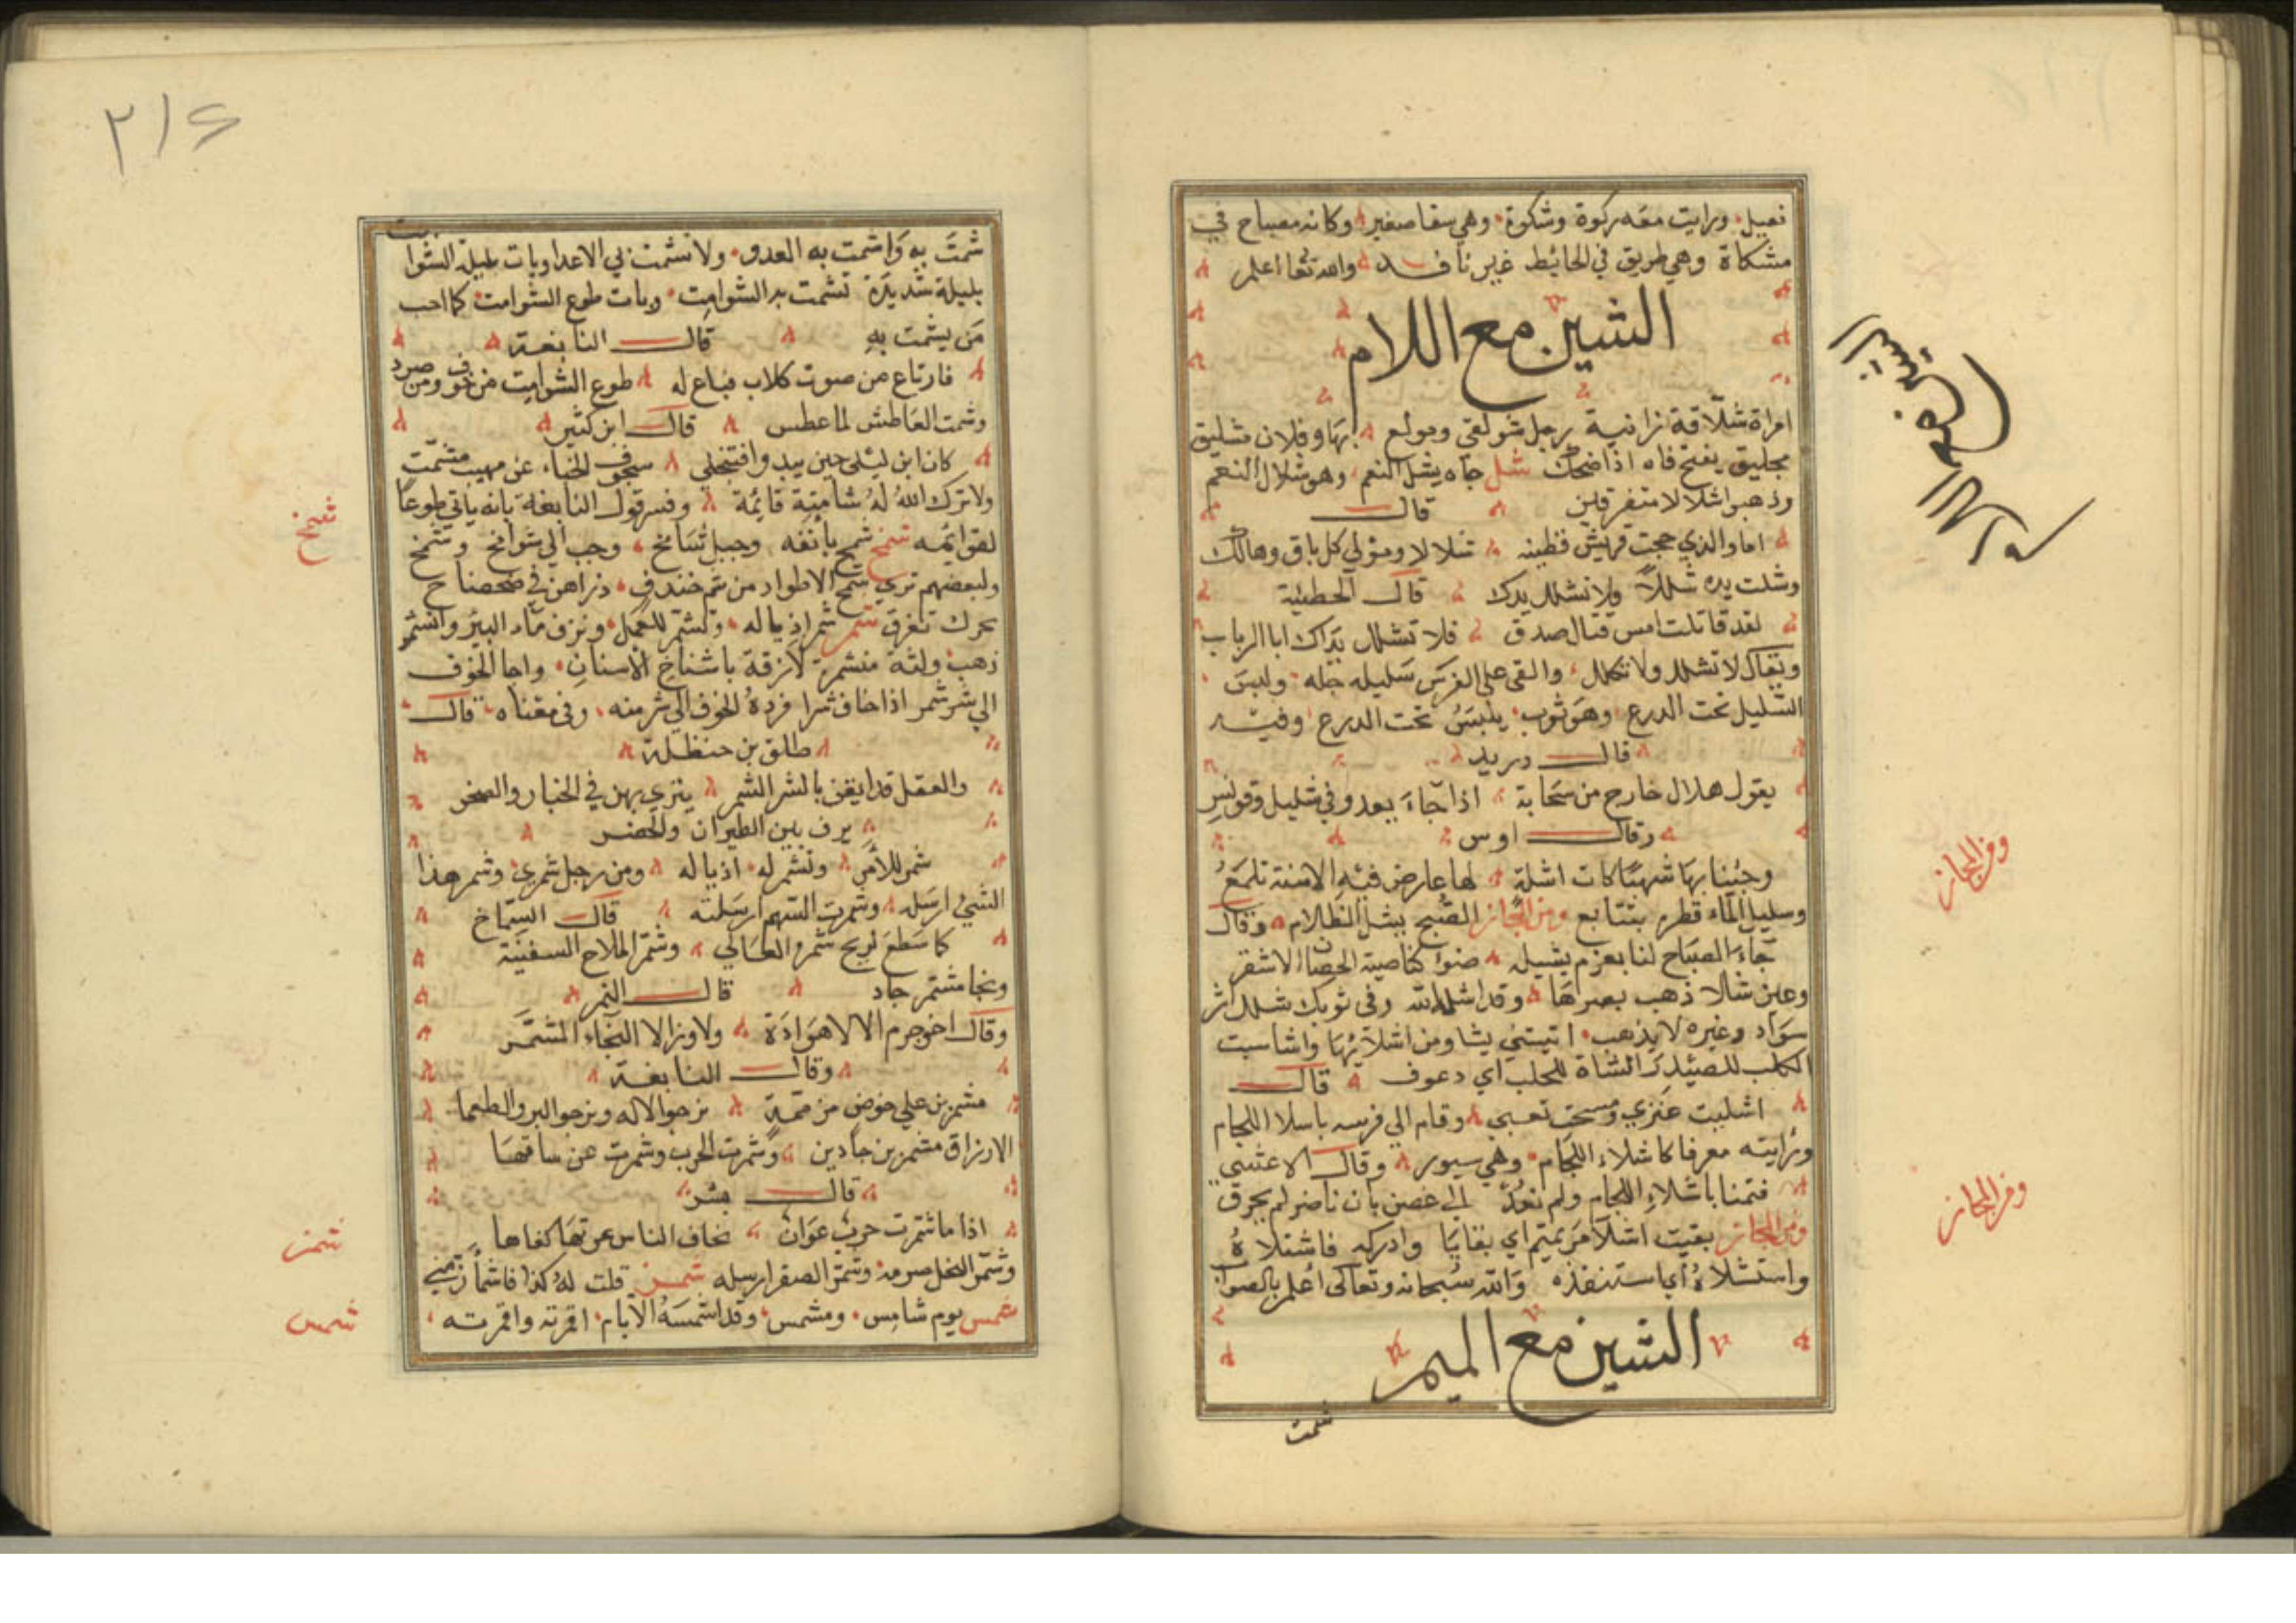 فعيل ورايت معه ركوة وشكوة وهي سقا صغير وكانه مصباح في
مشكاة وهي طريق في الحائيط غير نافـــذ والله تعا اعلم
الشين مع اللام
امراة شلّاقة زانية رجل شولقي ومولع بها وفلان شليق
مجليق يفتح فاه اذا ضحك شل جاه يشل النعم وهو شلال النعم
وذهبوا شلالا متفرقين قالـــ
اما والذي حجت قريش قطينه شلالا ومولي كل باق وهالك
وشلت يده شللاً ولا تشلل يدك قالـ الحطيئة
لقد قاتلت امس قتال صدق فلا تشلل يداك ابا الرباب
ويقال لا تشلل ولا تكلل والقي علي الفرس سليله جله ولبس
الشليل تحت الدرع وهو ثوب يلبس تحت الدرع وفيه
قالـــ دريد
يقول هلال خارج من سحابة اذا جاء يعدو في شليل وقونس
وقالـــ اوس
وجئنا بها شهبا كات اشلة لها عارض فيه الاسنة تلمع
وسليل الماء قطر متتابع ومن المجاز الصبح يشل الظلام وقال
جاء الصباح لنا بعزم يشيله ضوا كناصية الحصان الاشقر
وعين شالا ذهب بصرها وقد اشلها الله وفي ثوبك شلل اثر
سواد وغيره لا يذهب اتيتني يشا ومن اشلائها واشاسبت
الكلب للصيد والشاة للحلب اي دعوف قالـــ
اشليت عنزي ومسحت تعبي وقام الي فرسه باسلا اللجام
ورايته معرفا كاشلاء اللجام وهي سيور وقالـ الاعشي
فتمنا باشلاء اللجام ولم نعد الي غصن بان ناضر لم يحرق
ومن المجاز بقيت اشلا من تميم اي بقايا وادركه فاشتلاه
واستشلاه اي استنقذه والله سبحانه وتعالى اعلم بالصواب
الشين مع الميم
شمت
ومن المجاز
ومن المجاز
٢١٤
شمت به واشمت به العدو ولا تشمت بي الاعدا وبات بليلة الشوامت
بليلة شديدة تشمت به الشوامت وبات طوع الشوامت كما احب
من يشمت به قالـــ النابغة
فارتاع من صوت كلاب فباع له طوع الشوامت من خوف ومن صرد
وشمت العاطش لما عطس قالـ ابن كثير
كان ابن ليلي حين يبدو افتنجلي سجوف الخباء عن مهيب مشمّت
ولا ترك الله له شامتة قائمة وفسر قول النابغة بانه ياتي طوعا
لقوائمه شمخ شمخ بانفه وجبل شامخ وجب الي شوامخ وشمخ
ولبعضهم تري شمخ الاطواد من شم خندف ذراهن في ضحضاح
بحرك تغرق شمر شمر اذياله وتشمر للعمل ونزف ماء البئر وانشمر
ذهب ولثة منشمرة لازقة باشناخ الاسنان واجا الخوف
الي شر شمر اذا خاف شرا فرده الخوف الي شر منه وفي معناه قالـ
طلق بن حنظلة
والعقل قد ايقن بالشر الشمر ينزي بهن في الخبار والصخر
يرف بين الطيران والحضر
شمر للأمر وتشمر له اذياله ومن رجل شمري وشمر هذا
الشي ارسله وشمرت السهم ارسلته قالـ الشماخ
كما سطع لريح شمر العالي وشمّر الملاح السفينة
ونجا مشتمر جاد قالـــ النمر
وقالـ اخو جرم الا لا هوادة ولا وزر الا النجاء المشمّر
وقالـــ النابغة
مشمرين علي خوض مزممة نرجو الاله ونرجو البر والطعما
الارزاق مشمرين جادين وشمرت الحرب وشمرت عن ساقها
قالـــ بشر
اذا ما شمرت حرب عوان يخاف الناس عرتها كفاها
وشمّر النخل صرمه وشمّر الصقر ارسله شمز قلت له كذا فاشمأز مني
شمس يوم شامس ومشمس وقد اشمسه الايام اقمرته واقمرته
شمخ
شمز
شمس